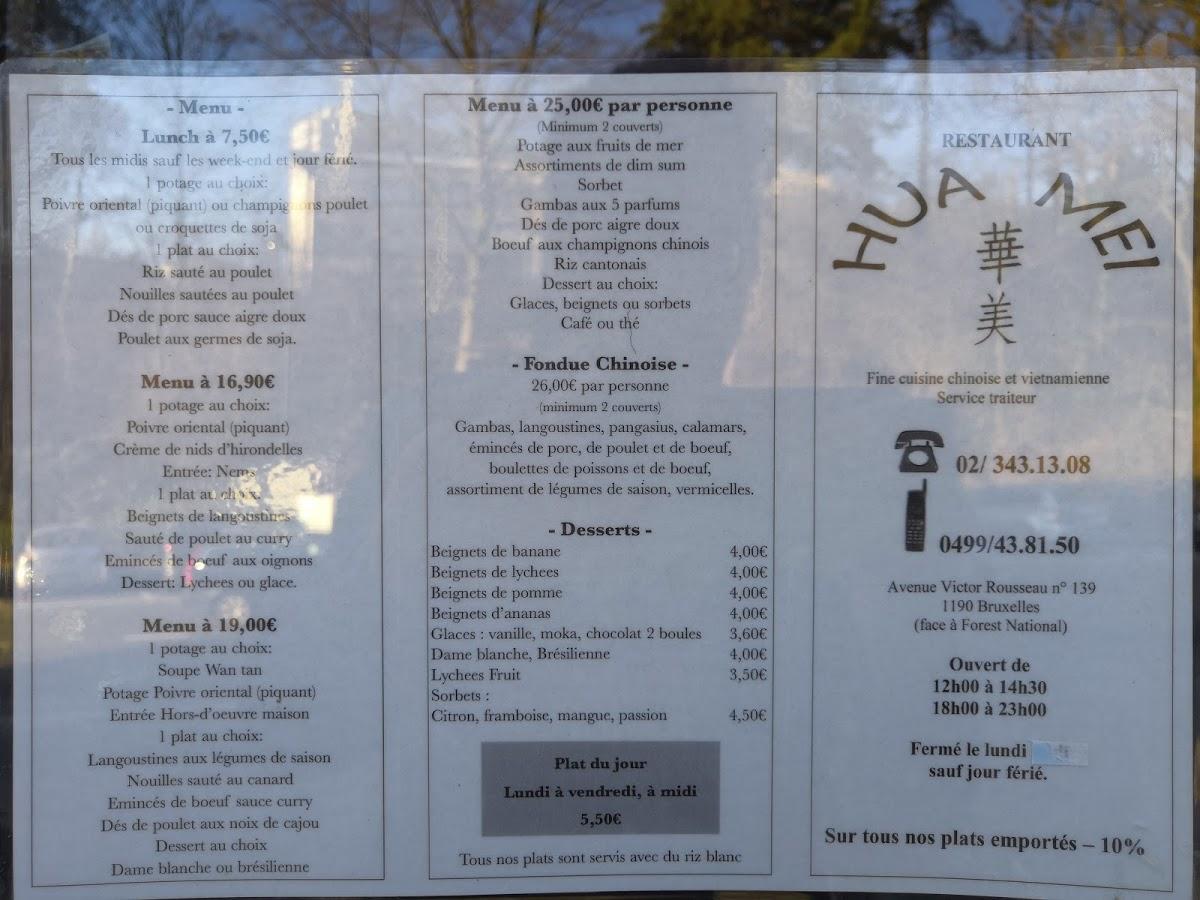 - Menu -
Lunch à 7,50€
Tous les midis sauf les week-end et jour férié.
1 potage au choix:
Poivre oriental (piquant) ou champignons poulet
ou croquettes de soja
1 plat au choix:
Riz sauté au poulet
Nouilles sautées au poulet
Dés de porc sauce aigre doux
Poulet aux germes de soja.
Menu à 16,90€
1 potage au choix:
Poivre oriental (piquant)
Crème de nids d'hirondelles
Entrée: Nems
1 plat au choix:
Beignets de langoustines
Sauté de poulet au curry
Emincés de boeuf aux oignons
Dessert: Lychees ou glace.
Menu à 19,00€
1 potage au choix:
Soupe Wan tan
Potage Poivre oriental (piquant)
Entrée Hors-d'oeuvre maison
1 plat au choix:
Langoustines aux légumes de saison
Nouilles sauté au canard
Emincés de boeuf sauce curry
Dés de poulet aux noix de cajou
Dessert au choix
Dame blanche ou brésilienne
Menu à 25,00€ par personne
(Minimum 2 couverts)
Potage aux fruits de mer
Assortiments de dim sum
Sorbet
Gambas aux 5 parfums
Dés de porc aigre doux
Boeuf aux champignons chinois
Riz cantonais
Dessert au choix:
Glaces, beignets ou sorbets
Café ou thé
- Fondue Chinoise -
26,00€ par personne
(minimum 2 couverts)
Gambas, langoustines, pangasius, calamars,
émincés de porc, de poulet et de boeuf,
boulettes de poissons et de boeuf,
assortiment de légumes de saison, vermicelles.
- Desserts -
Beignets de banane 4,00€
Beignets de lychees 4,00€
Beignets de pomme 4,00€
Beignets d'ananas 4,00€
Glaces : vanille, moka, chocolat 2 boules 3,60€
Dame blanche, Brésilienne 4,00€
Lychees Fruit 3,50€
Sorbets :
Citron, framboise, mangue, passion 4,50€
Plat du jour
Lundi à vendredi, à midi
5,50€
Tous nos plats sont servis avec du riz blanc
RESTAURANT
HUA MEI
華
美
Fine cuisine chinoise et vietnamienne
Service traiteur
02/ 343.13.08
0499/43.81.50
Avenue Victor Rousseau n° 139
1190 Bruxelles
(face à Forest National)
Ouvert de
12h00 à 14h30
18h00 à 23h00
Fermé le lundi
sauf jour férié.
Sur tous nos plats emportés – 10%